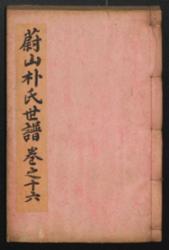 蔚山朴氏世譜 卷之十六